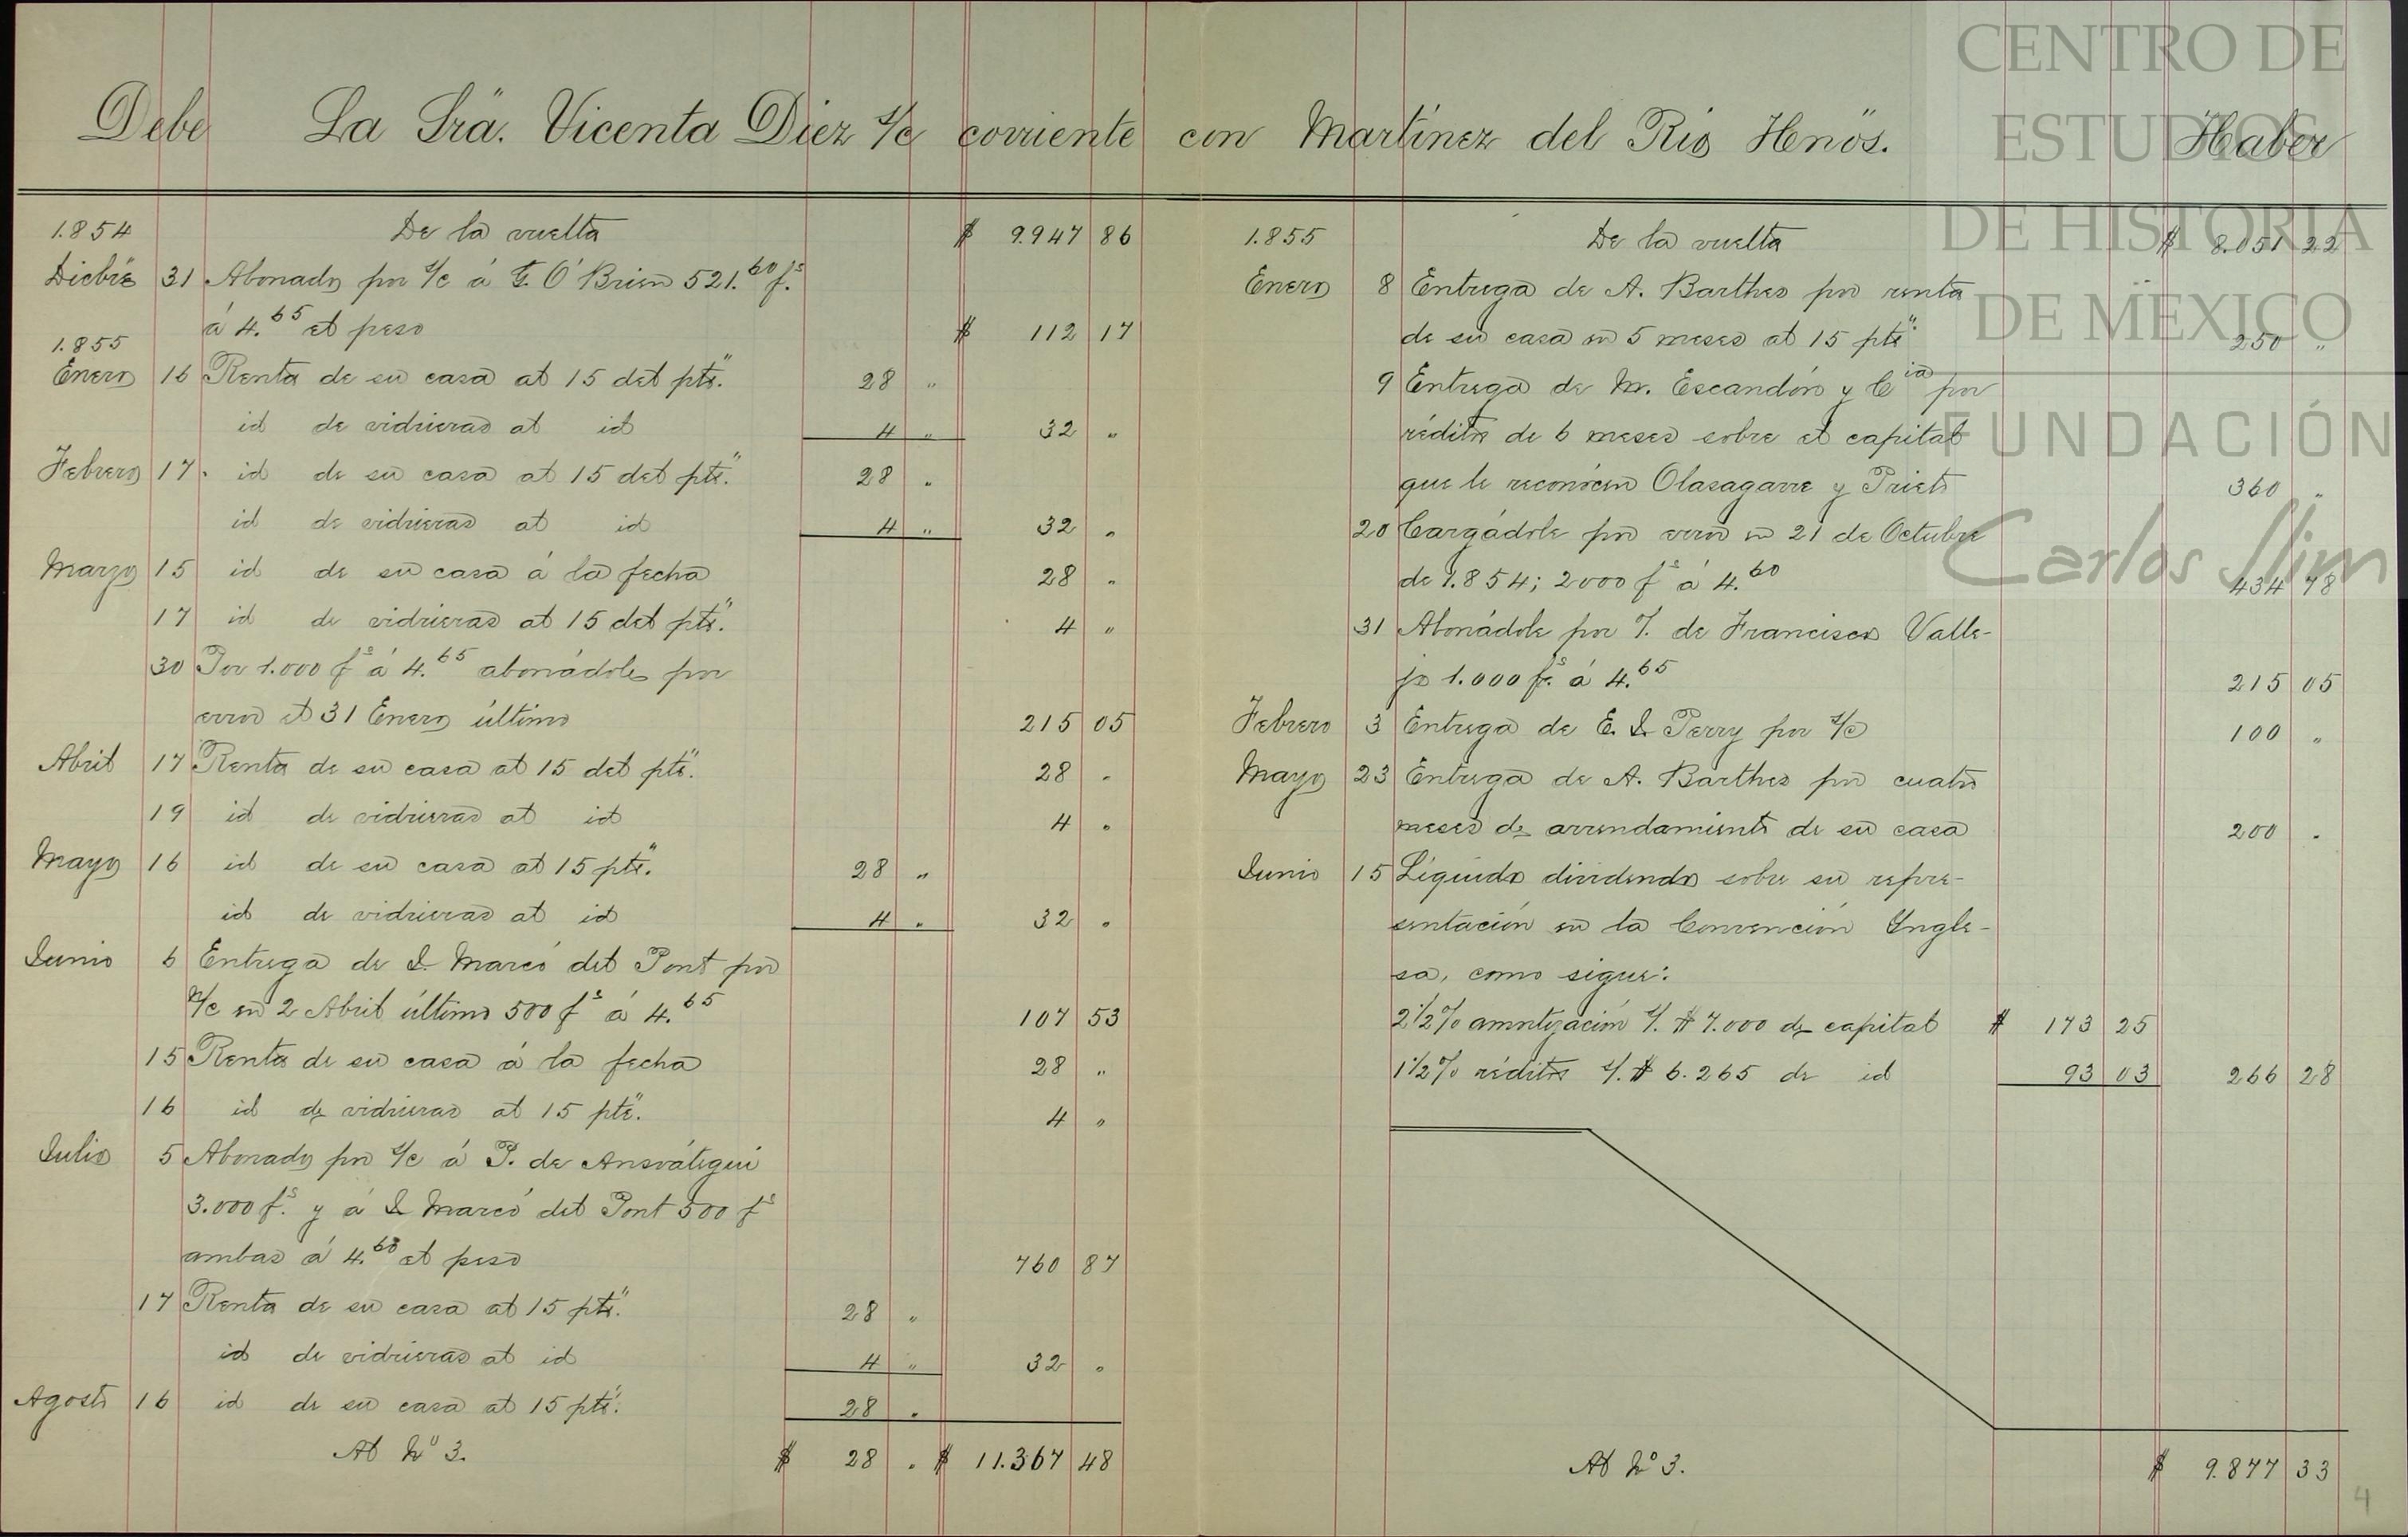 Debe La Srä. Vicenta Diez s/c corriente con Martínez del Rio Henös. Haber
1.854 De la vuelta $ 9.947 86
Dicbre 31 Abonado por s/c á G. O'Brien 521.60 f.s
á 4.65 el peso $ 112 17
1.855
Enero 16 Renta de su casa al 15 del pte. 28 "
id de vidrieras al id 4 " 32 "
Febrero 17. id de su casa al 15 del pte. 28 "
id de vidrieras al id 4 " 32 "
Marzo 15 id de su casa á la fecha 28 "
17 id de vidrieras al 15 del pte. 4 "
30 Por 1.000 f.s á 4.65 abonádoles por
error el 31 Enero último 215 05
Abril 17 Renta de su casa al 15 del pte. 28 "
19 id de vidrieras al id 4 "
Mayo 16 id de su casa al 15 pte. 28 "
id de vidrieras al id 4 " 32 "
Junio 6 Entrega de J. Marcó del Pont por
n/c en 2 Abril último 500 f.s á 4.65 107 53
15 Renta de su casa á la fecha 28 "
16 id de vidrieras al 15 pte. 4 "
Julio 5 Abonado por s/c á P. de Ansoátegui
3.000 f.s y á J. Marcó del Pont 500 f.s
ambas á 4.60 el peso 760 87
17 Renta de su casa al 15 pte. 28 "
id de vidrieras al id 4 " 32 "
Agosto 16 id de su casa al 15 pte. 28 "
Al No 3. $ 28 " $ 11.367 48
1.855 De la vuelta $ 8.051 22
Enero 8 Entrega de A. Barthes por renta
de su casa en 5 meses al 15 pte. 250 "
9 Entrega de M. Escandón y Cia por
réditos de 6 meses sobre el capital
que le reconócen Olasagarre y Prieto 360 "
20 Cargádole por error en 21 de Octubre
de 1.854; 2000 f.s á 4.60 434 78
31 Abonádole por de Francisco Valle-
jo 1.000 f.s á 4.65 215 05
Febrero 3 Entrega de E. J. Perry por s/c 100 "
Mayo 23 Entrega de A. Barthes por cuatro
meses de arrendamiento de su casa 200 "
Junio 15 Líquido dividendo sobre su repre-
sentación en la Convención Ingle-
sa, como sigue:
2 1/2 % amortización s/. $ 7.000 de capital $ 173 25
1 1/2 % réditos s/. $ 6.265 de id 93 03 266 28
Al No 3. $ 9.877 33
4
CENTRO DE
ESTUDIOS
DE HISTORIA
DE MÉXICO
FUNDACIÓN
Carlos Slim